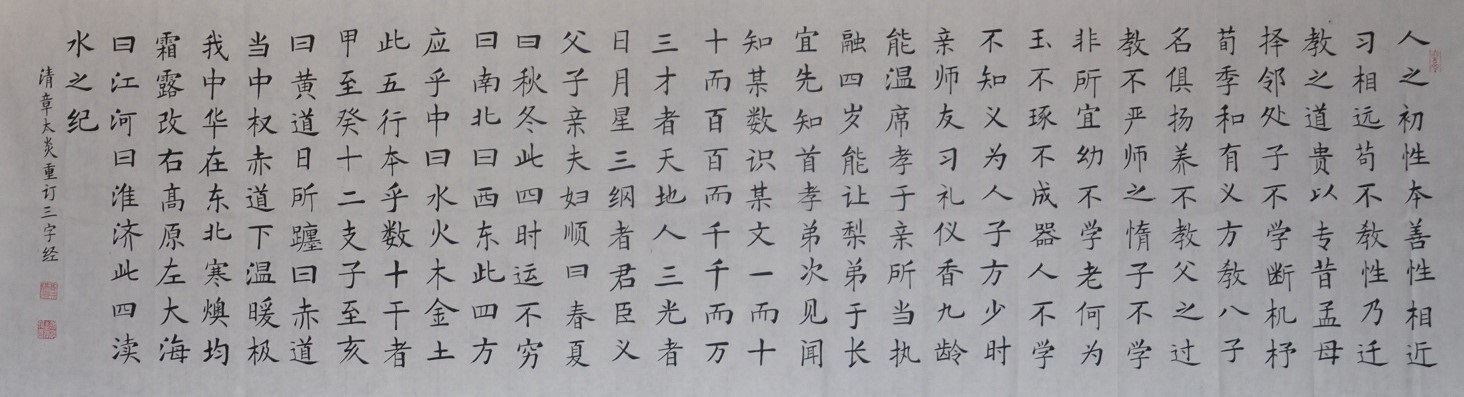 人之初性本善性相近
习相远苟不教性乃迁
教之道贵以专昔孟母
择邻处子不学断机杼
荀季和有义方教八子
名俱扬养不教父之过
教不严师之惰子不学
非所宜幼不学老何为
玉不琢不成器人不学
不知义为人子方少时
亲师友习礼仪香九龄
能温席孝于亲所当执
融四岁能让梨弟于长
宜先知首孝弟次见闻
知某数识某文一而十
十而百百而千千而万
三才者天地人三光者
日月星三纲者君臣义
父子亲夫妇顺曰春夏
曰秋冬此四时运不穷
曰南北曰西东此四方
应乎中曰水火木金土
此五行本乎数十干者
甲至癸十二支子至亥
曰黄道日所躔曰赤道
当中权赤道下温暖极
我中华在东北寒燠均
霜露改右高原左大海
曰江河曰淮济此四渎
水之纪
清章太炎重订三字经